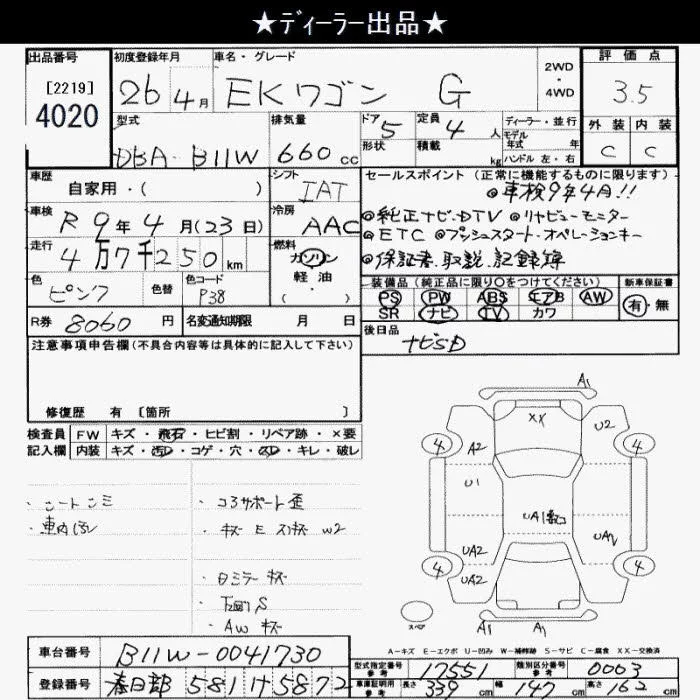 ★ディーラー出品★
出品番号 初度登録年月 車名・グレード 2WD・4WD 評価点
[2219] 4020 26年4月 EKワゴン G 3.5
型式 排気量 ドア 5 定員 4人 ディーラー・並行 外装 内装
モデル年式 年
DBA-B11W 660cc 形状 積載 kg ハンドル 左・右 C C
車歴 自家用・( ) シフト IAT セールスポイント (正常に機能するものに限ります)
◎車検9年4月!!
車検 R9年4月(23日) 冷房 AAC ◎純正ナビ・DTV ◎リヤビューモニター
走行 4万7千250km 燃料 ガソリン 軽・油 ( ) ◎ETC ◎プッシュスタート・オペレーションキー
◎保証書、取説、記録簿
色 ピンク 色替 色コード P38 装備品 (純正品に限り○をつけてください) 新車保証書
PS PW ABS エアB AW 有・無
R券 8060円 名変通知期限 月 日 SR ナビ TV カワ
後日品
注意事項申告欄 (不具合内容等は具体的に記入して下さい) ナビSD
修復歴 有 [箇所 ]
検査員 FW キズ・飛石・ヒビ割・リペア跡・×要
記入欄 内装 キズ・汚レ・コゲ・穴・スレ・キレ・破レ
A1
XX
U2
4 A2 4
・シートシミ ・コアサポート歪 U1
・車内 ・キズ E スリキズ W2 UA1
UA2
・Dミラーキズ 4 UA2 4
S
・AWキズ スペア A1 A1
A-キズ E-エクボ U-凹み W-補修跡 S-サビ C-腐食 XX-交換済
車台番号 B11W-0041730 型式指定番号 参考 17551 類別区分番号 参考 0003
登録番号 春日部 581 け 5872 車庫証明用 参考 長さ 339cm 幅 147cm 高さ 162cm